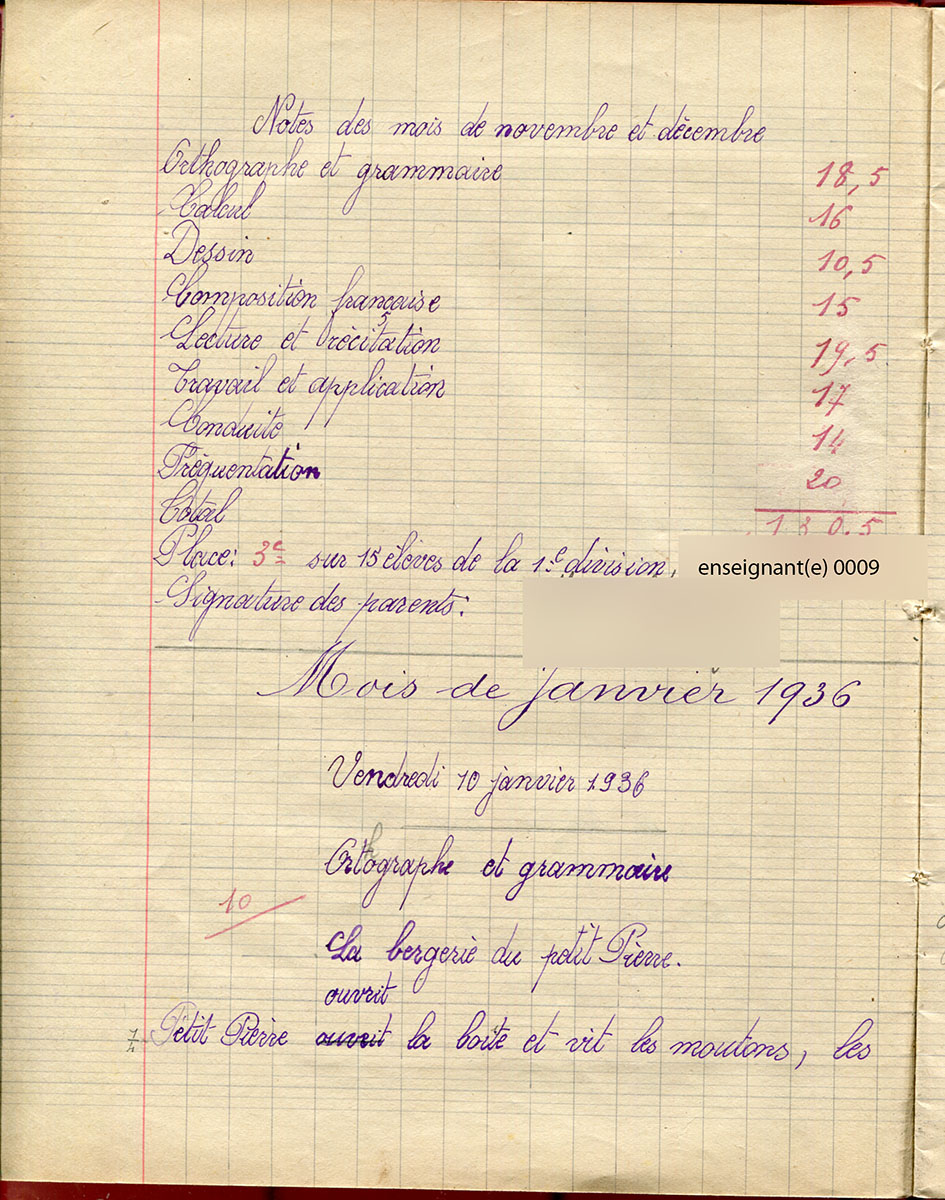 Notes des mois de novembre et décembre
Orthographe et grammaire 18,5
Calcul 16
Dessin 10,5
Composition française 15
Lecture et récitation 19,5
Travail et application 17
Conduite 14
Fréquentation 20
Total 130.5
Place: 3e sur 15 élèves de la 1e division, enseignant(e) 0009
Signature des parents:
Mois de janvier 1936
Vendredi 10 janvier 1936
Orthographe et grammaire
10
La bergerie du petit Pierre.
ouvrit
Petit Pierre ouvrit la boîte et vit les moutons, les